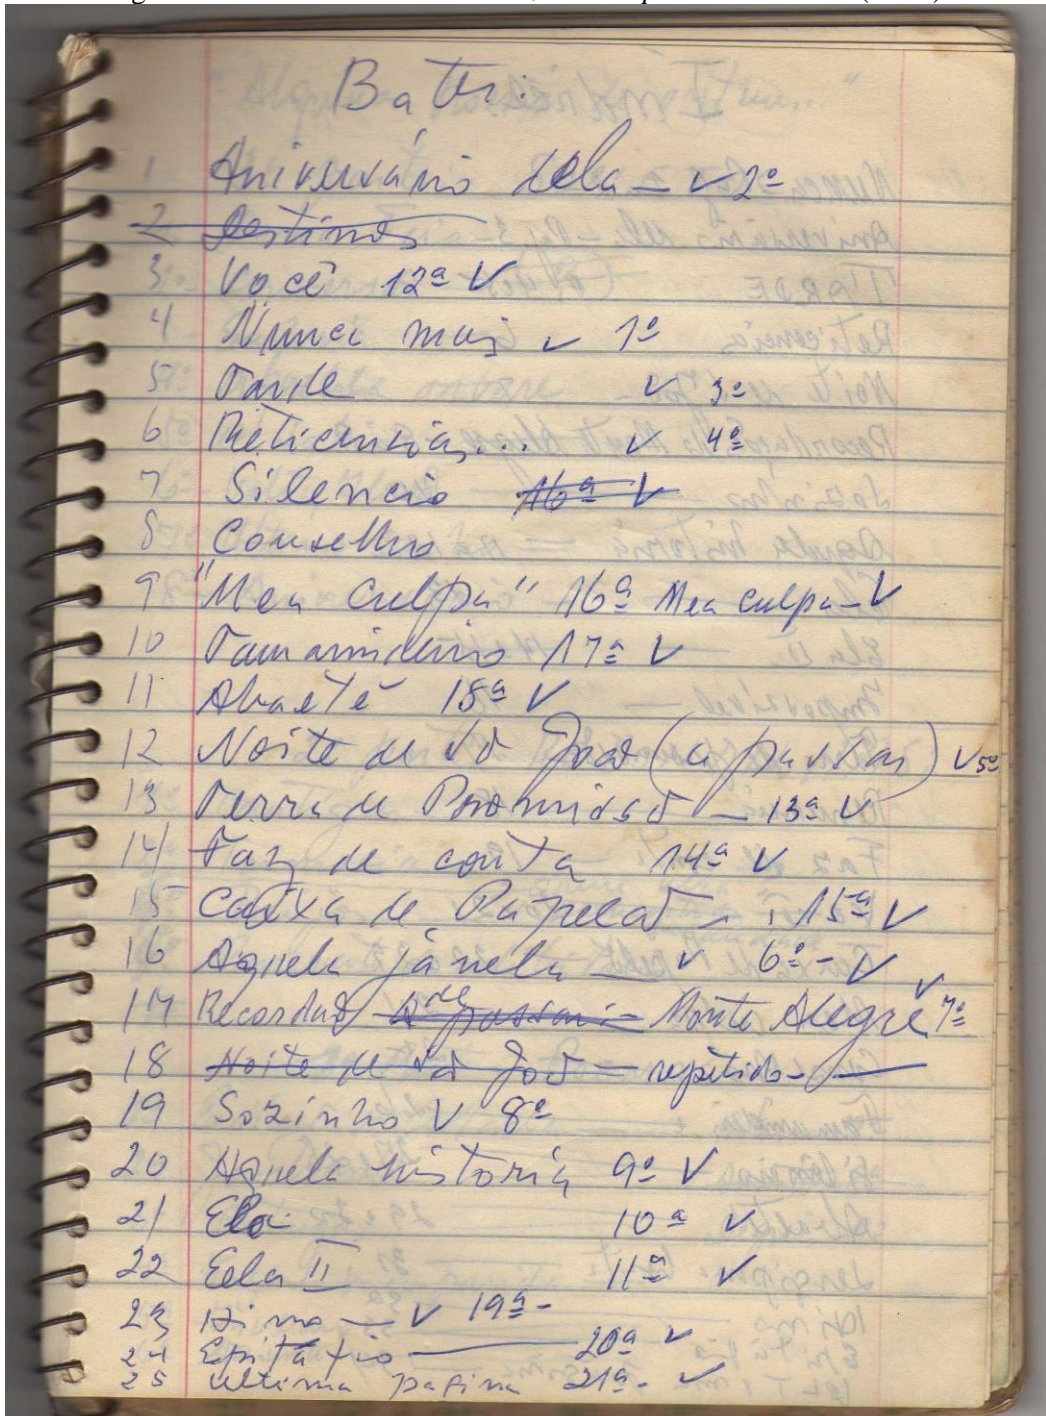 Bater:
1 Aniversário dela — v 2º
2 Destinos
3 Você 12ª V
4 Nunca mais v 1º
5 Tarde v 3º
6 Reticencias... v 4º
7 Silencio 16ª V
8 Conselho
9 "Mea Culpa" 16ª Mea culpa - V
10 Tamarindeiro 17ª V
11 Abaeté 18ª V
12 Noite de São João (a passar) V 5º
13 Terra de Promissão — 13ª V
14 Faz de conta 14ª V
15 Caixa de Papelão - 15ª V
16 Aquela janela — v 6º - V
17 Recordação Monte Alegre 7º v
18 Noite de São João — repetido —
19 Sozinho V 8º
20 Aquela historia 9º V
21 Ela 10ª V
22 Ela II 11ª V
23 Hino — V 19ª -
24 Epitáfio — 20ª V
25 Ultima pagina 21ª - V